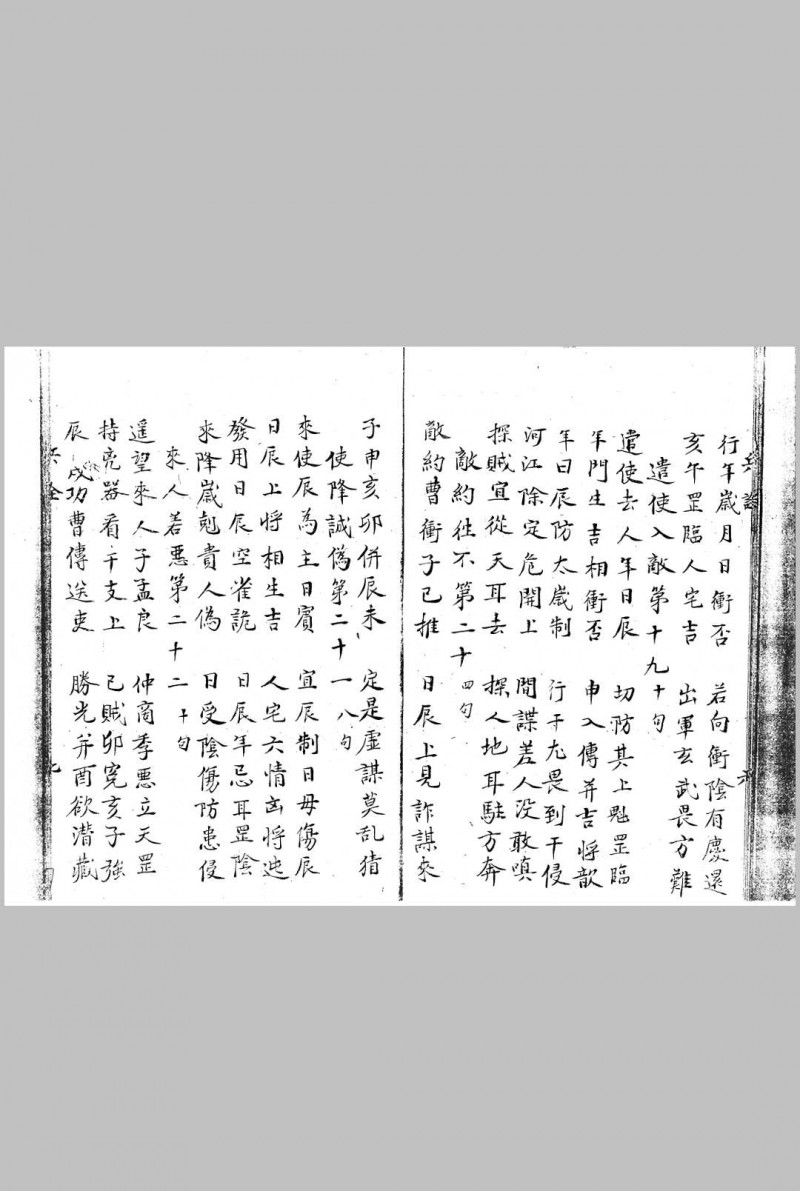 行年歲月日衝否　若向衝陰有慶還
亥午罡臨人宅吉　出軍玄武畏方難
遣使入敵第十九十句
遣使去人年日辰　切防其上魁罡臨
年門生吉相衝否　申入傳并吉將歆
年曰辰防太歲制　行干尤畏到干侵
河江除定危開上　間諜差人没敢嗔
探賊宜從天耳去　探人地耳駐方奔
敵約徃不第二十四句
敵約曹衝子已推　日辰上見詐謀來
子申亥卯併辰未　定是虛謀莫亂猜
使降誠偽第二十一八句
來使辰為主日賓　宜辰制日毋傷辰
日辰上將相生吉　人宅六情凶將迍
發用日辰空雀詭　日辰年忌耳罡陰
來降歲尅貴人偽　日受陰傷防患侵
來人若惡第二十二十句
遥望來人子孟良　仲商季悪立天罡
持亮器看干支上　已賊卯寃亥子強
辰戌功曹傳送吏　勝光并酉欲潛藏